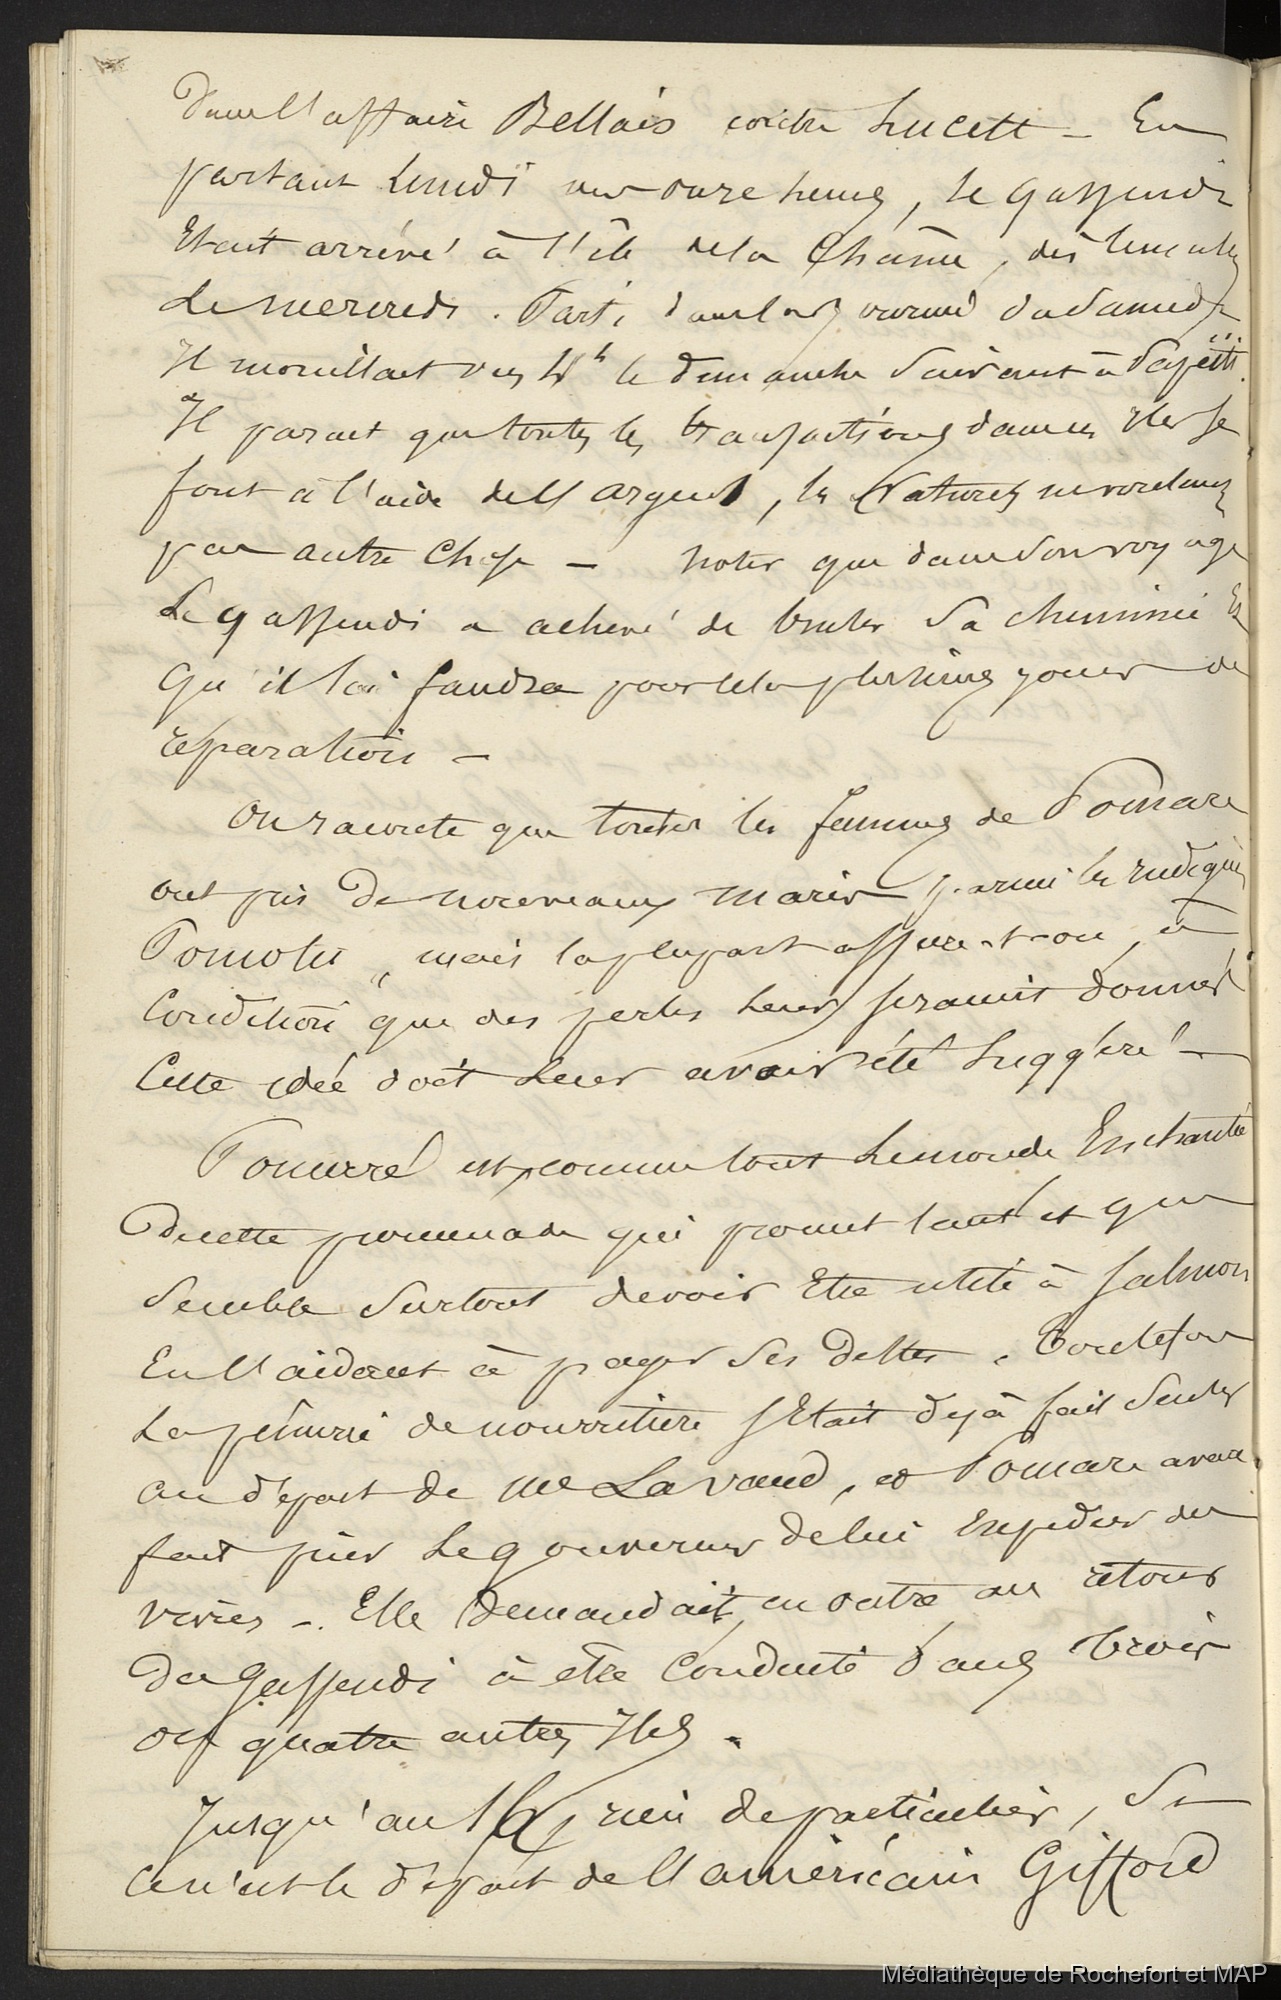 Dans l'affaire Bellais contre Lucett - En
partant lundi vers onze heures, le Gassendi
Etait arrivé à l'île de la Chaîne, dès
le mercredi. Parti dans la du Samedi
Il mouillait vers 4h le dimanche suivant à Papéiti.
Il parait que toutes les transactions dans ces Iles se
font à l'aide de l'argent, les Naturels ne voulant
pas autre chose - Noter que dans son voyage
Le Gassendi a achevé de bruler Sa cheminée Et
qu'il lui faudra pour cela plusieurs jours de
réparation -
On raconte que toutes les femmes de Pomaré
ont pris de nouveaux maris parmi les indigènes
Pomotu, mais la plupart assure-t-on, à
Condition que des perles leurs seraient données
Cette idée doit leur avoir été suggéré -
Pomarré est comme tout le monde Enchantée
De cette promenade qui promet tant et qui
Semble Surtout devoir Etre utile à Salmon
En l'aidant à payer Ses Dettes. Toutefois
La pénurie de nourriture s'Etait déjà fait Sentir
au départ de Mr Lavaud, et Pomaré avait
fait prier Le gouverneur de lui Expédier des
vivres -. Elle demandait, en outre au retour
Du Gassendi à être Conduite dans trois
ou quatre autres Iles.
Jusqu'au rien de particulier, Si
Ce n'est le départ de l'américain Gifford
Médiathèque de Rochefort et MAP